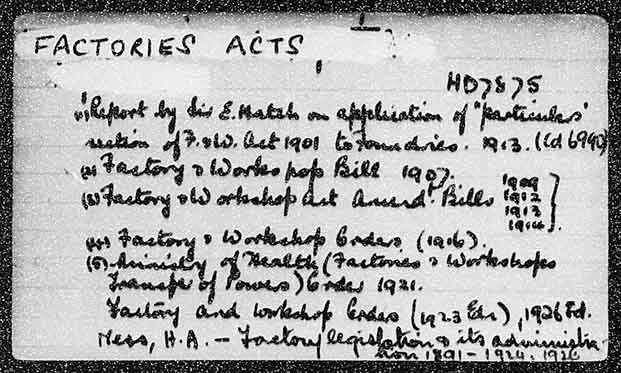 FACTORIES ACTS
HD7875
(1) Report by Sir E. Hatch on application of "particulars"
section of F. & W. Act 1901 to Foundries. 1913. (Cd 6990)
(2) Factory & Works pop Bill 1907.
(3) Factory & Workshop Act Amend^t Bills 1909
1912
1913
1914
(4) Factory & Workshop Orders (1916).
(5) Ministry of Health (Factories & Workshops
Transfer of Powers) Order 1921.
Factory and Workshop Orders (1923 Edn), 1926 Ed.
Ness, H.A. – Factory legislation & its administra-
tion 1891–1924. 1926